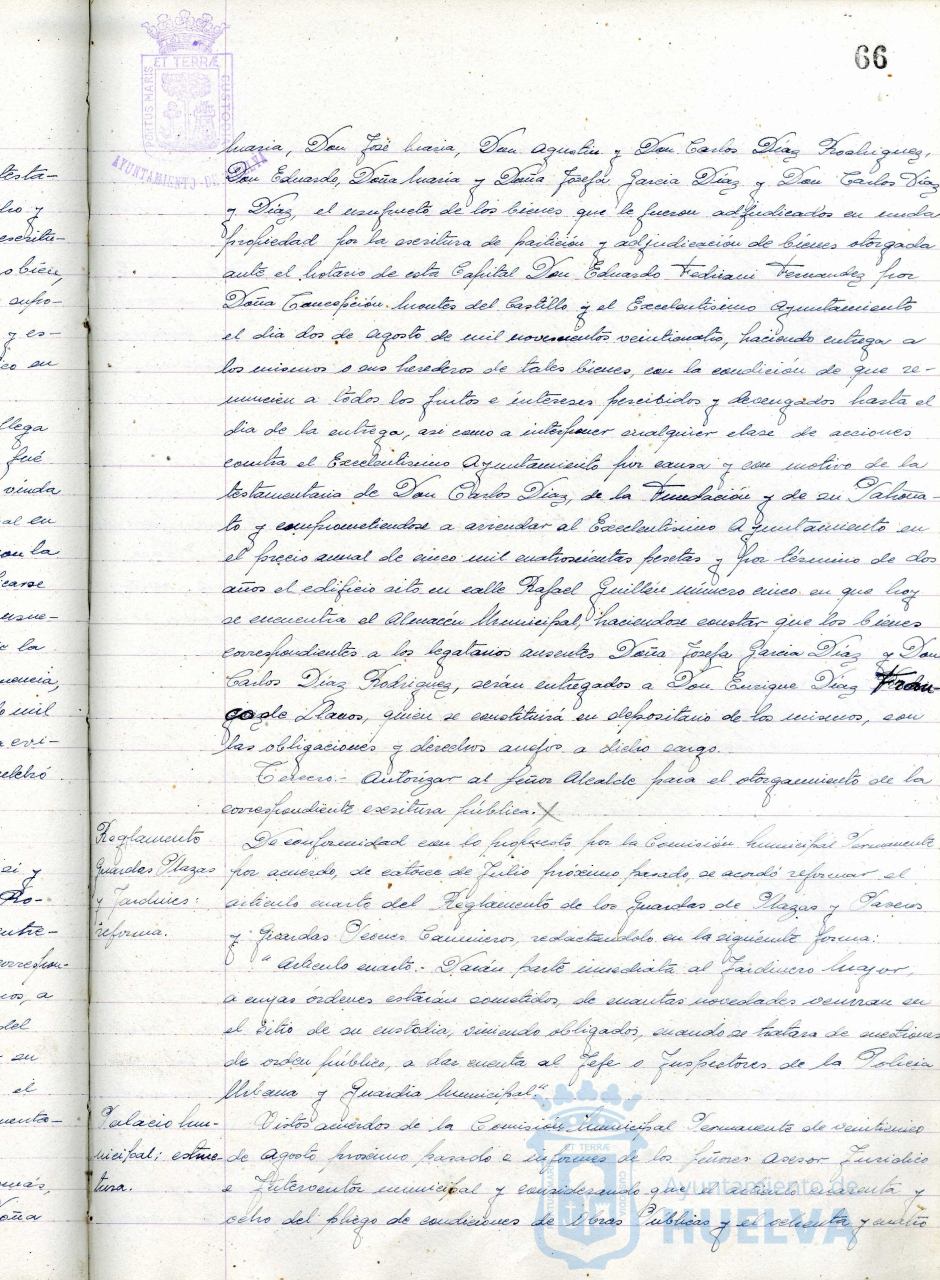 66
PORTUS MARIS ET TERRÆ CUSTODIA
AYUNTAMIENTO DE HUELVA
Maria, Don José Maria, Don Agustin y Don Carlos Diaz Rodriguez,
Don Eduardo, Doña Maria y Doña Josefa Garcia Diaz y Don Carlos Diaz
y Diaz, el usufructo de los bienes que le fueron adjudicados en nuda
propiedad por la escritura de partición y adjudicación de bienes otorgada
ante el Notario de esta Capital Don Eduardo Fedriani Fernandez por
Doña Concepción Montes del Castillo y el Excelentisimo Ayuntamiento
el dia dos de Agosto de mil novecientos veinticuatro, haciendo entrega a
los mismos o sus herederos de tales bienes, con la condición de que re-
nuncien a todos los frutos e intereses percibidos y devengados hasta el
dia de la entrega, asi como a interponer cualquier clase de acciones
contra el Excelentisimo Ayuntamiento por causa y con motivo de la
testamentaria de Don Carlos Diaz, de la Fundación y de su Patrona-
to y comprometiendose a arrendar al Excelentisimo Ayuntamiento en
el precio anual de cinco mil cuatrocientas pesetas y por término de dos
años el edificio sito en calle Rafael Guillén número cinco en que hoy
se encuentra el Almacén Municipal, haciendose constar que los bienes
correspondientes a los legatarios ausentes Doña Josefa Garcia Diaz y Don
Carlos Diaz Rodriguez, serán entregados a Don Enrique Diaz Fran-
co de Llanos, quien se constituirá en depositario de los mismos, con
las obligaciones y derechos anejos a dicho cargo.
Tercero.- Autorizar al Señor Alcalde para el otorgamiento de la
correspondiente escritura pública.
Reglamento
Guardas Plazas
y Jardines:
reforma.
De conformidad con lo propuesto por la Comisión Municipal Permanente
por acuerdo, de catorce de Julio próximo pasado, se acordó reformar el
articulo cuarto del Reglamento de los Guardas de Plazas y Paseos
y Guardas Peones Camineros, redactandolo en la siguiente forma:
"Articulo cuarto.- Darán parte inmediata al Jardinero Mayor,
a cuyas órdenes estarán sometidos, de cuantas novedades ocurran en
el sitio de su custodia, viniendo obligados, cuando se tratara de cuestiones
de orden público, a dar cuenta al Jefe o Inspectores de la Policia
Urbana y Guardia Municipal"
Palacio Mu-
nicipal; estruc-
tura.
Vistos acuerdos de la Comisión Municipal Permanente de veinticinco
de Agosto proximo pasado e informes de los Señores Asesor Juridico
e Interventor municipal y considerando que el articulo cuarenta y
ocho del pliego de condiciones de Obras Publicas y el ochenta y cuatro
Ayuntamiento de
HUELVA